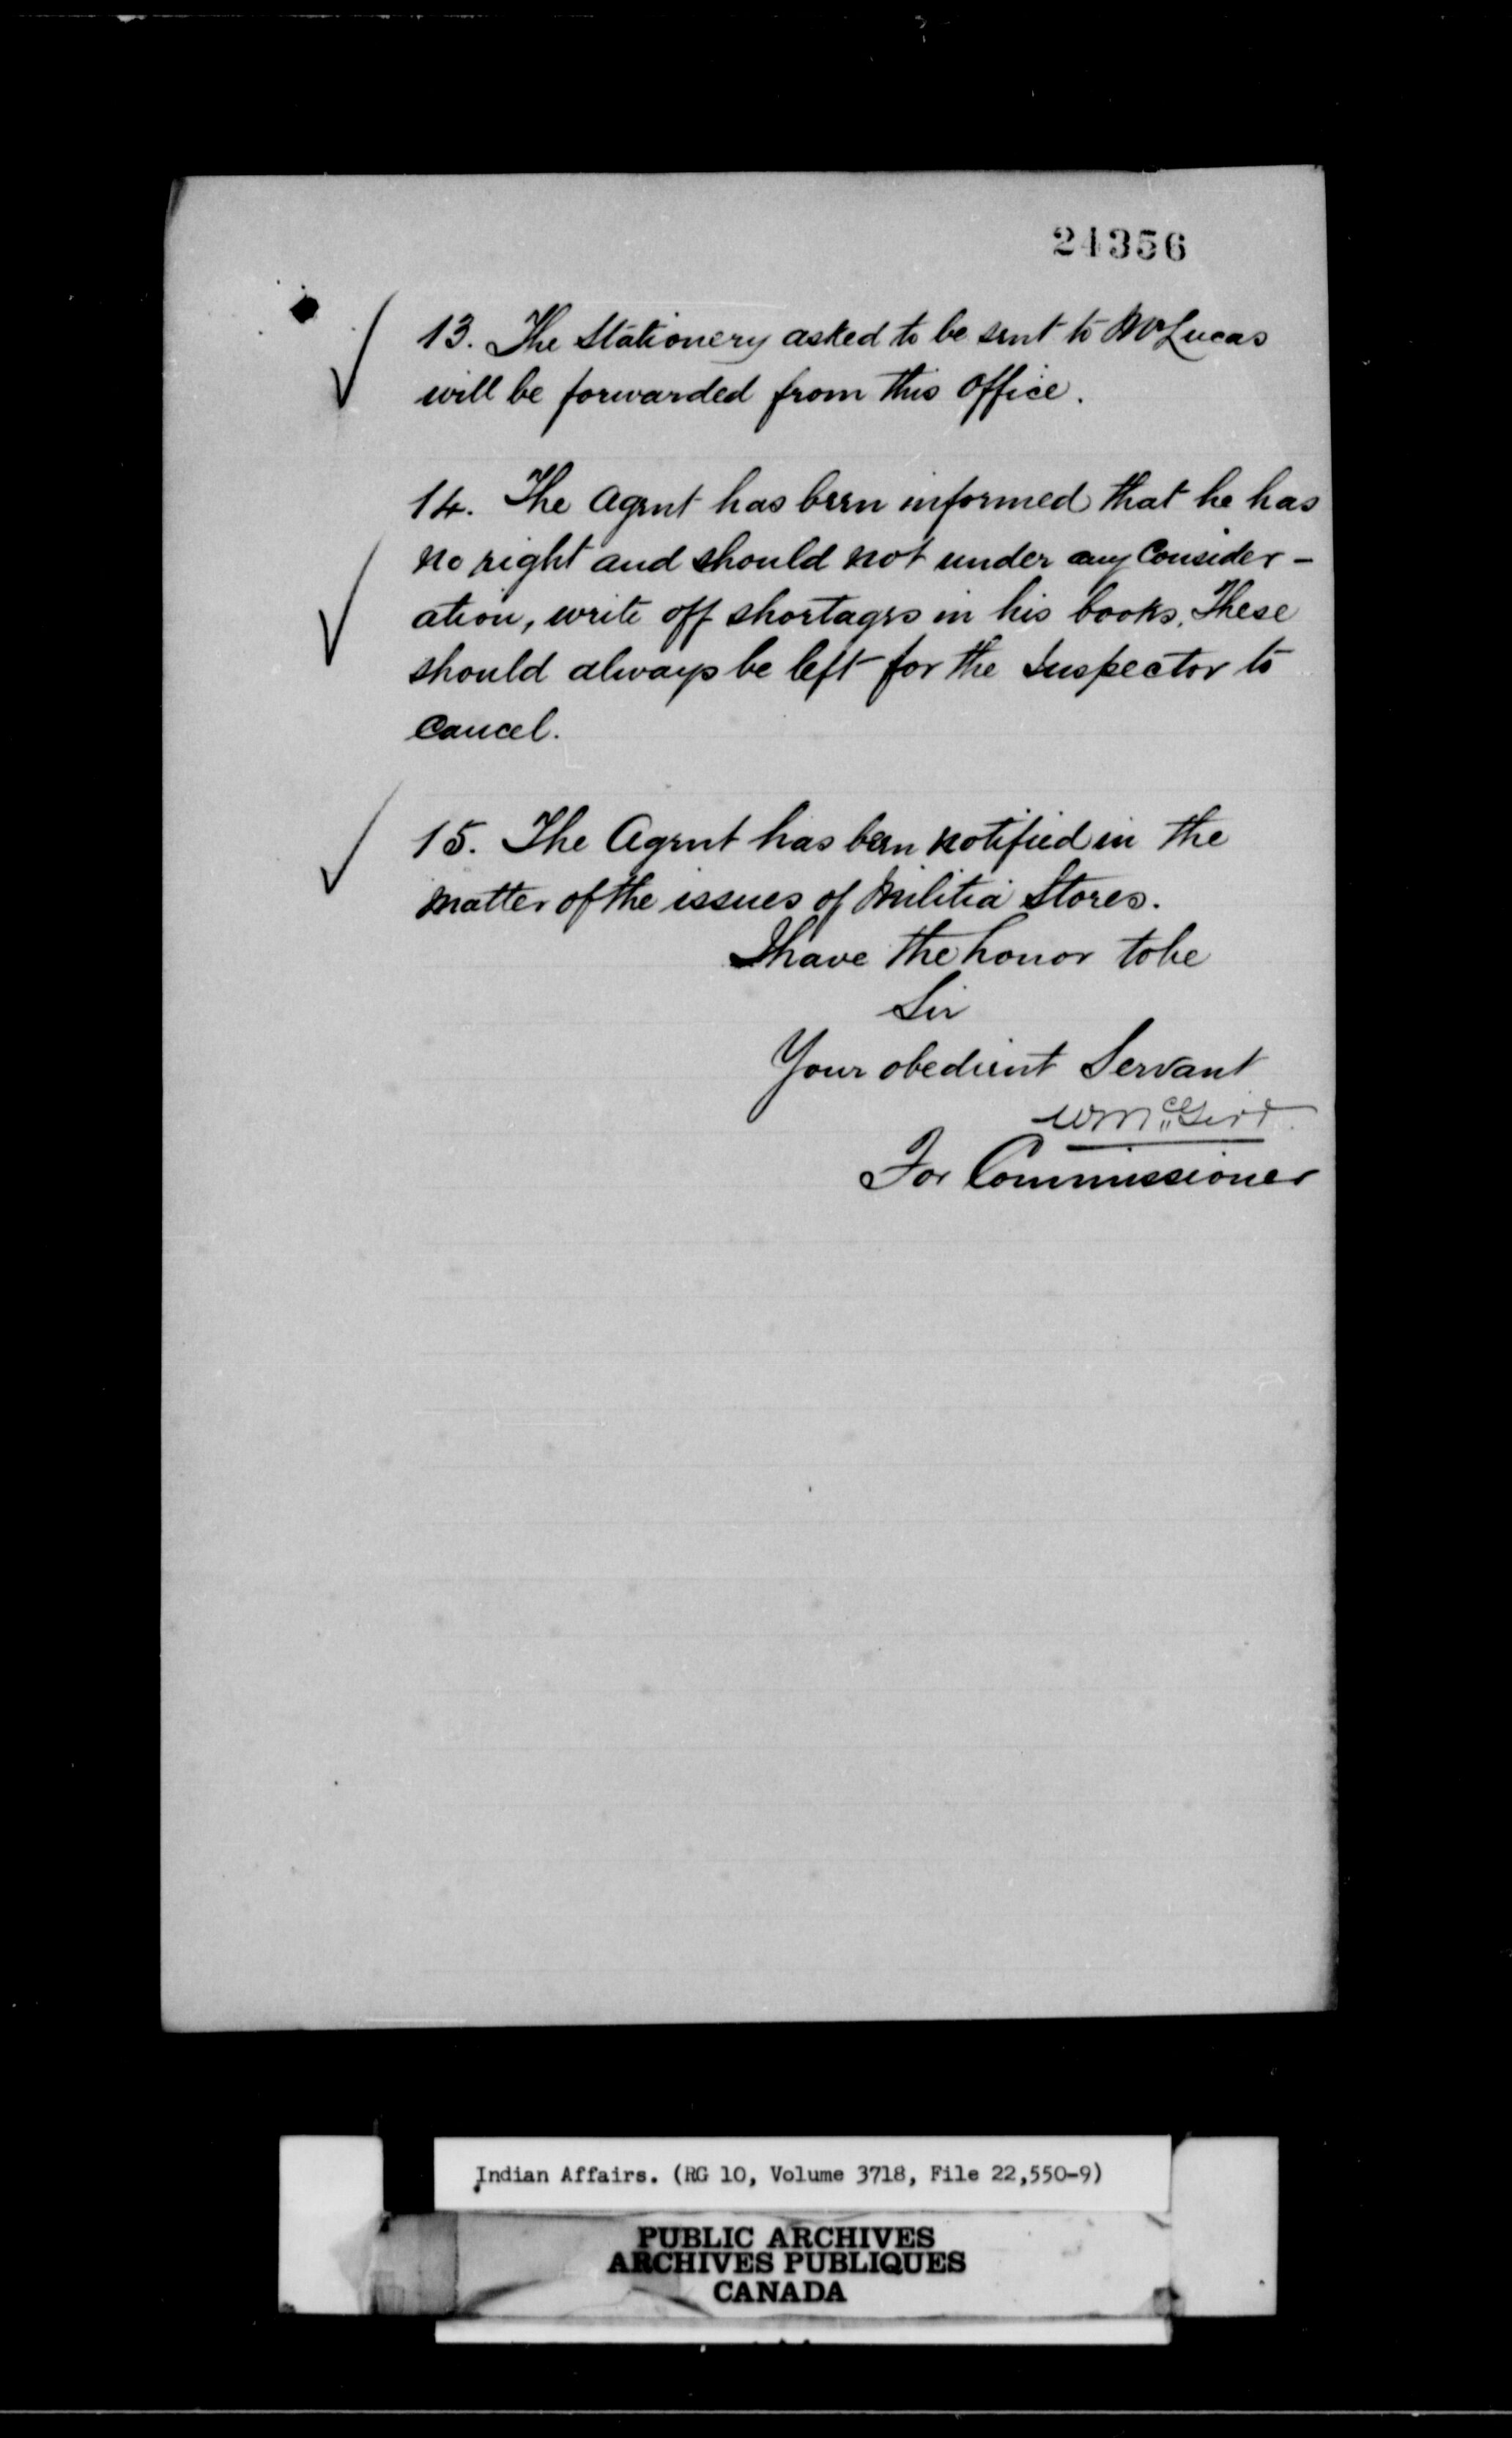 24356
13. The Stationery asked to be sent to Mr Lucas
will be forwarded from this office.
14. The Agent has been informed that he has
no right and should not under any Consider-
ation, write off shortages in his books. These
should always be left for the Inspector to
Cancel.
15. The Agent has been notified in the
matter of the issues of Militia Stores.
I have the honor to be
Sir
Your obedient Servant
W McGirr.
For Commissioner
Indian Affairs. (RG 10, Volume 3718, File 22,550-9)
PUBLIC ARCHIVES
ARCHIVES PUBLIQUES
CANADA